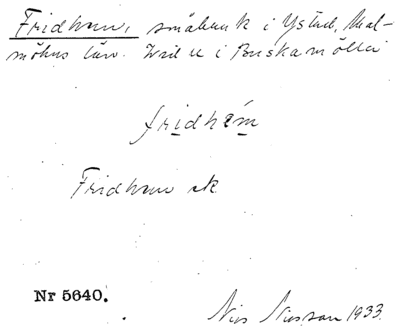 Fridhem, småbruk i Ystad, Mal-
möhus län. Invid u i Bruskamölla
fridhém
Fridhem sk
Nr 5640.
Nils Nilsson 1933.